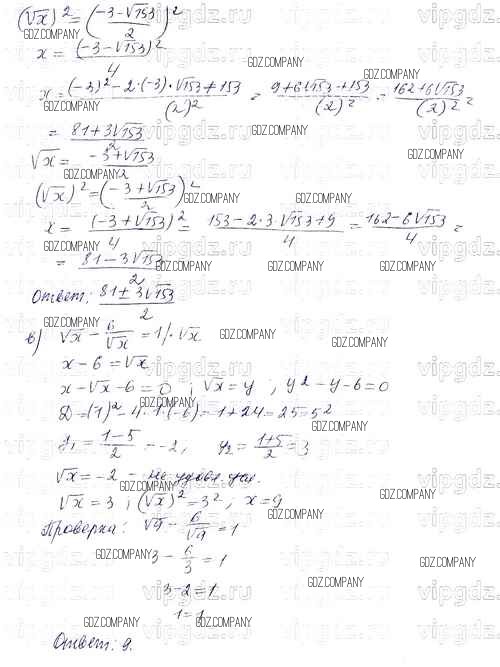 (√x)² = ((-3-√153)/2)²
x = (-3-√153)²/4
x = ((-3)²-2·(-3)·√153+153)/(2)² = (9+6√153+153)/(2)² = (162+6√153)/(2)² =
= (81+3√153)/2
√x = (-3+√153)/2
(√x)² = ((-3+√153)/2)²
x = (-3+√153)²/4 = (153-2·3·√153+9)/4 = (162-6√153)/4 =
= (81-3√153)/2
Ответ: (81±3√153)/2
в) √x - 6/√x = 1 /·√x
x-6=√x
x-√x-6=0 ; √x=y ; y²-y-6=0
D=(1)²-4·1·(-6)=1+24=25=5²
y₁ = (1-5)/2 = -2, y₂ = (1+5)/2 = 3
√x=-2 - не удовл. ур.
√x=3 ; (√x)²=3² ; x=9
Проверка: √9 - 6/√9 = 1
3 - 6/3 = 1
3-2=1
1=1
Ответ: 9.